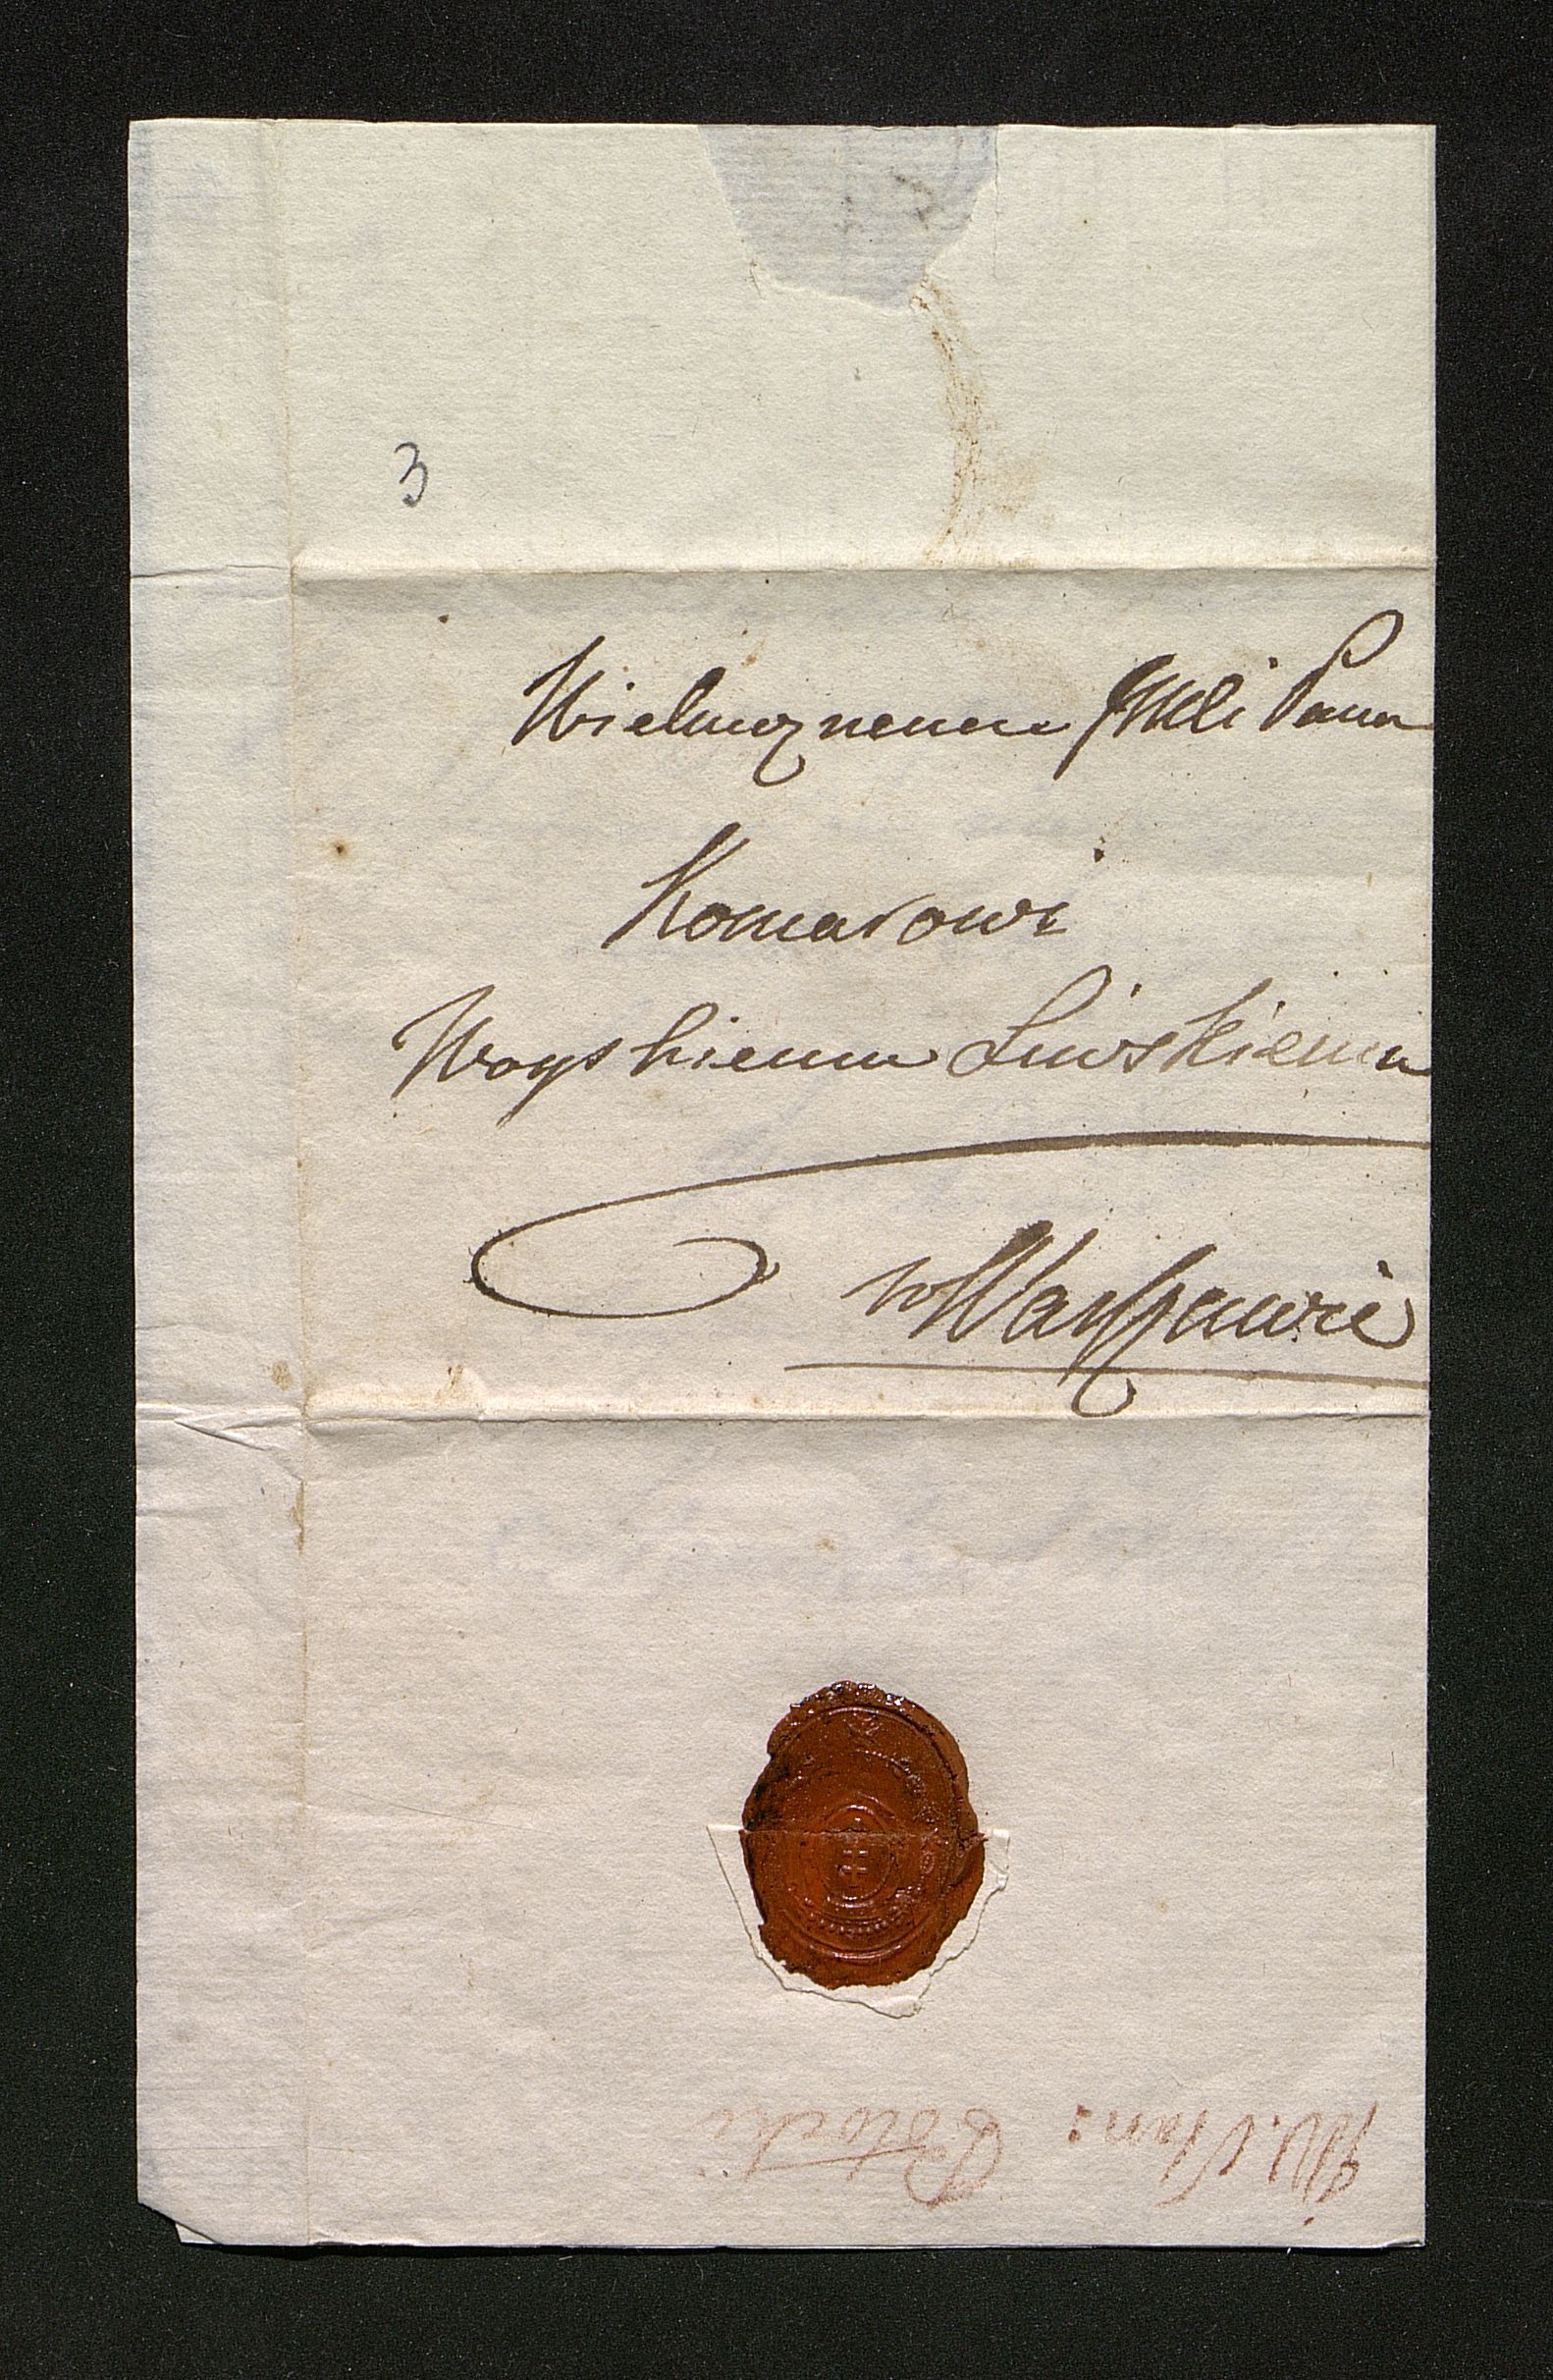 3
Wielmożnemu JMCi Panu
Komarowi
Woyskiemu Liwskiemu
w Warszawie
JW. Stan: Potocki